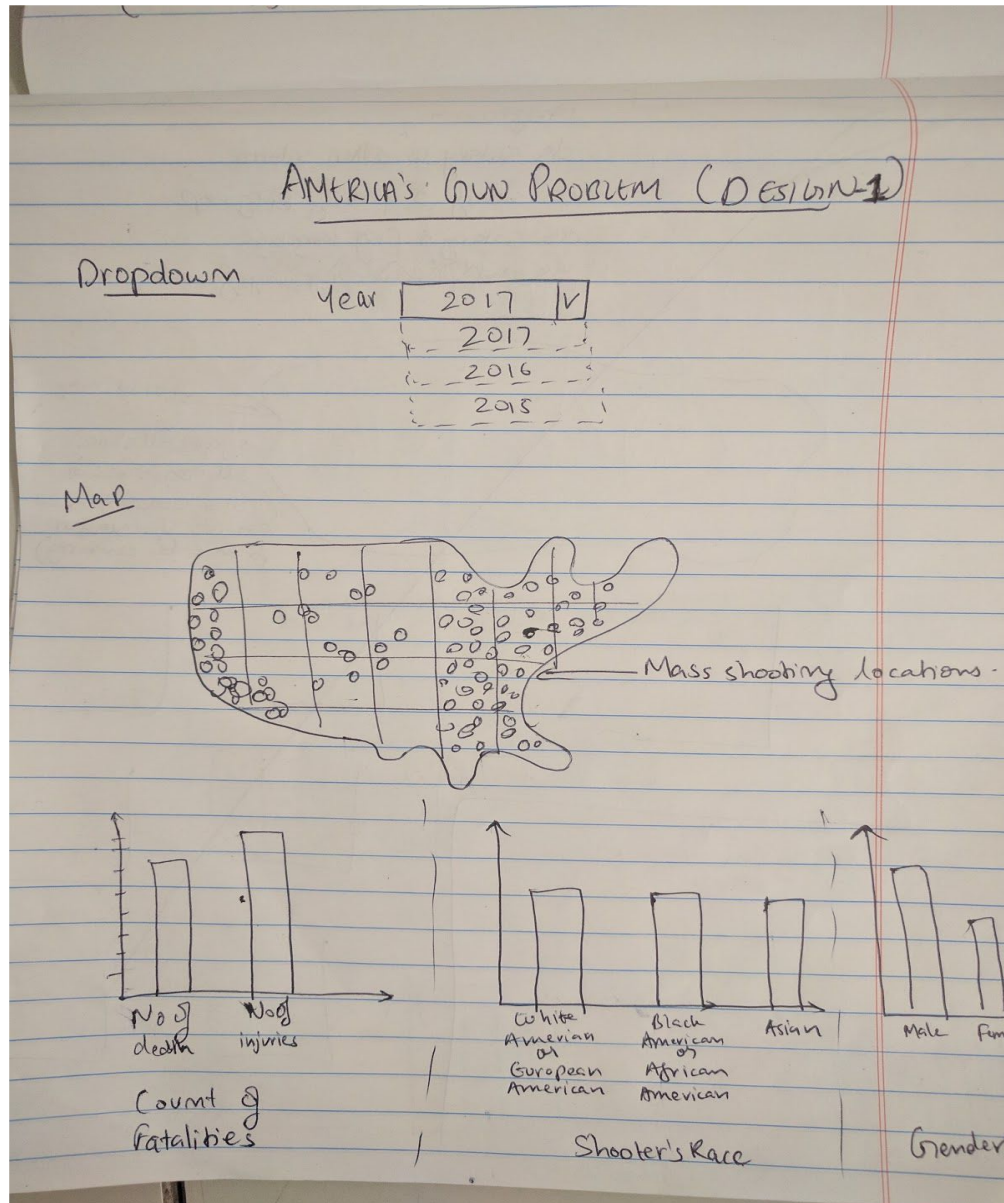 AMERICA'S GUN PROBLEM (DESIGN-1)
Dropdown
Year 2017 V
2017
2016
2015
Map
Mass shooting locations.
No of death
No of injuries
Count of
Fatalities
White
Amerian
or
European
American
Black
American
or
African
American
Asian
Shooter's Race
Male
Fem
Gender